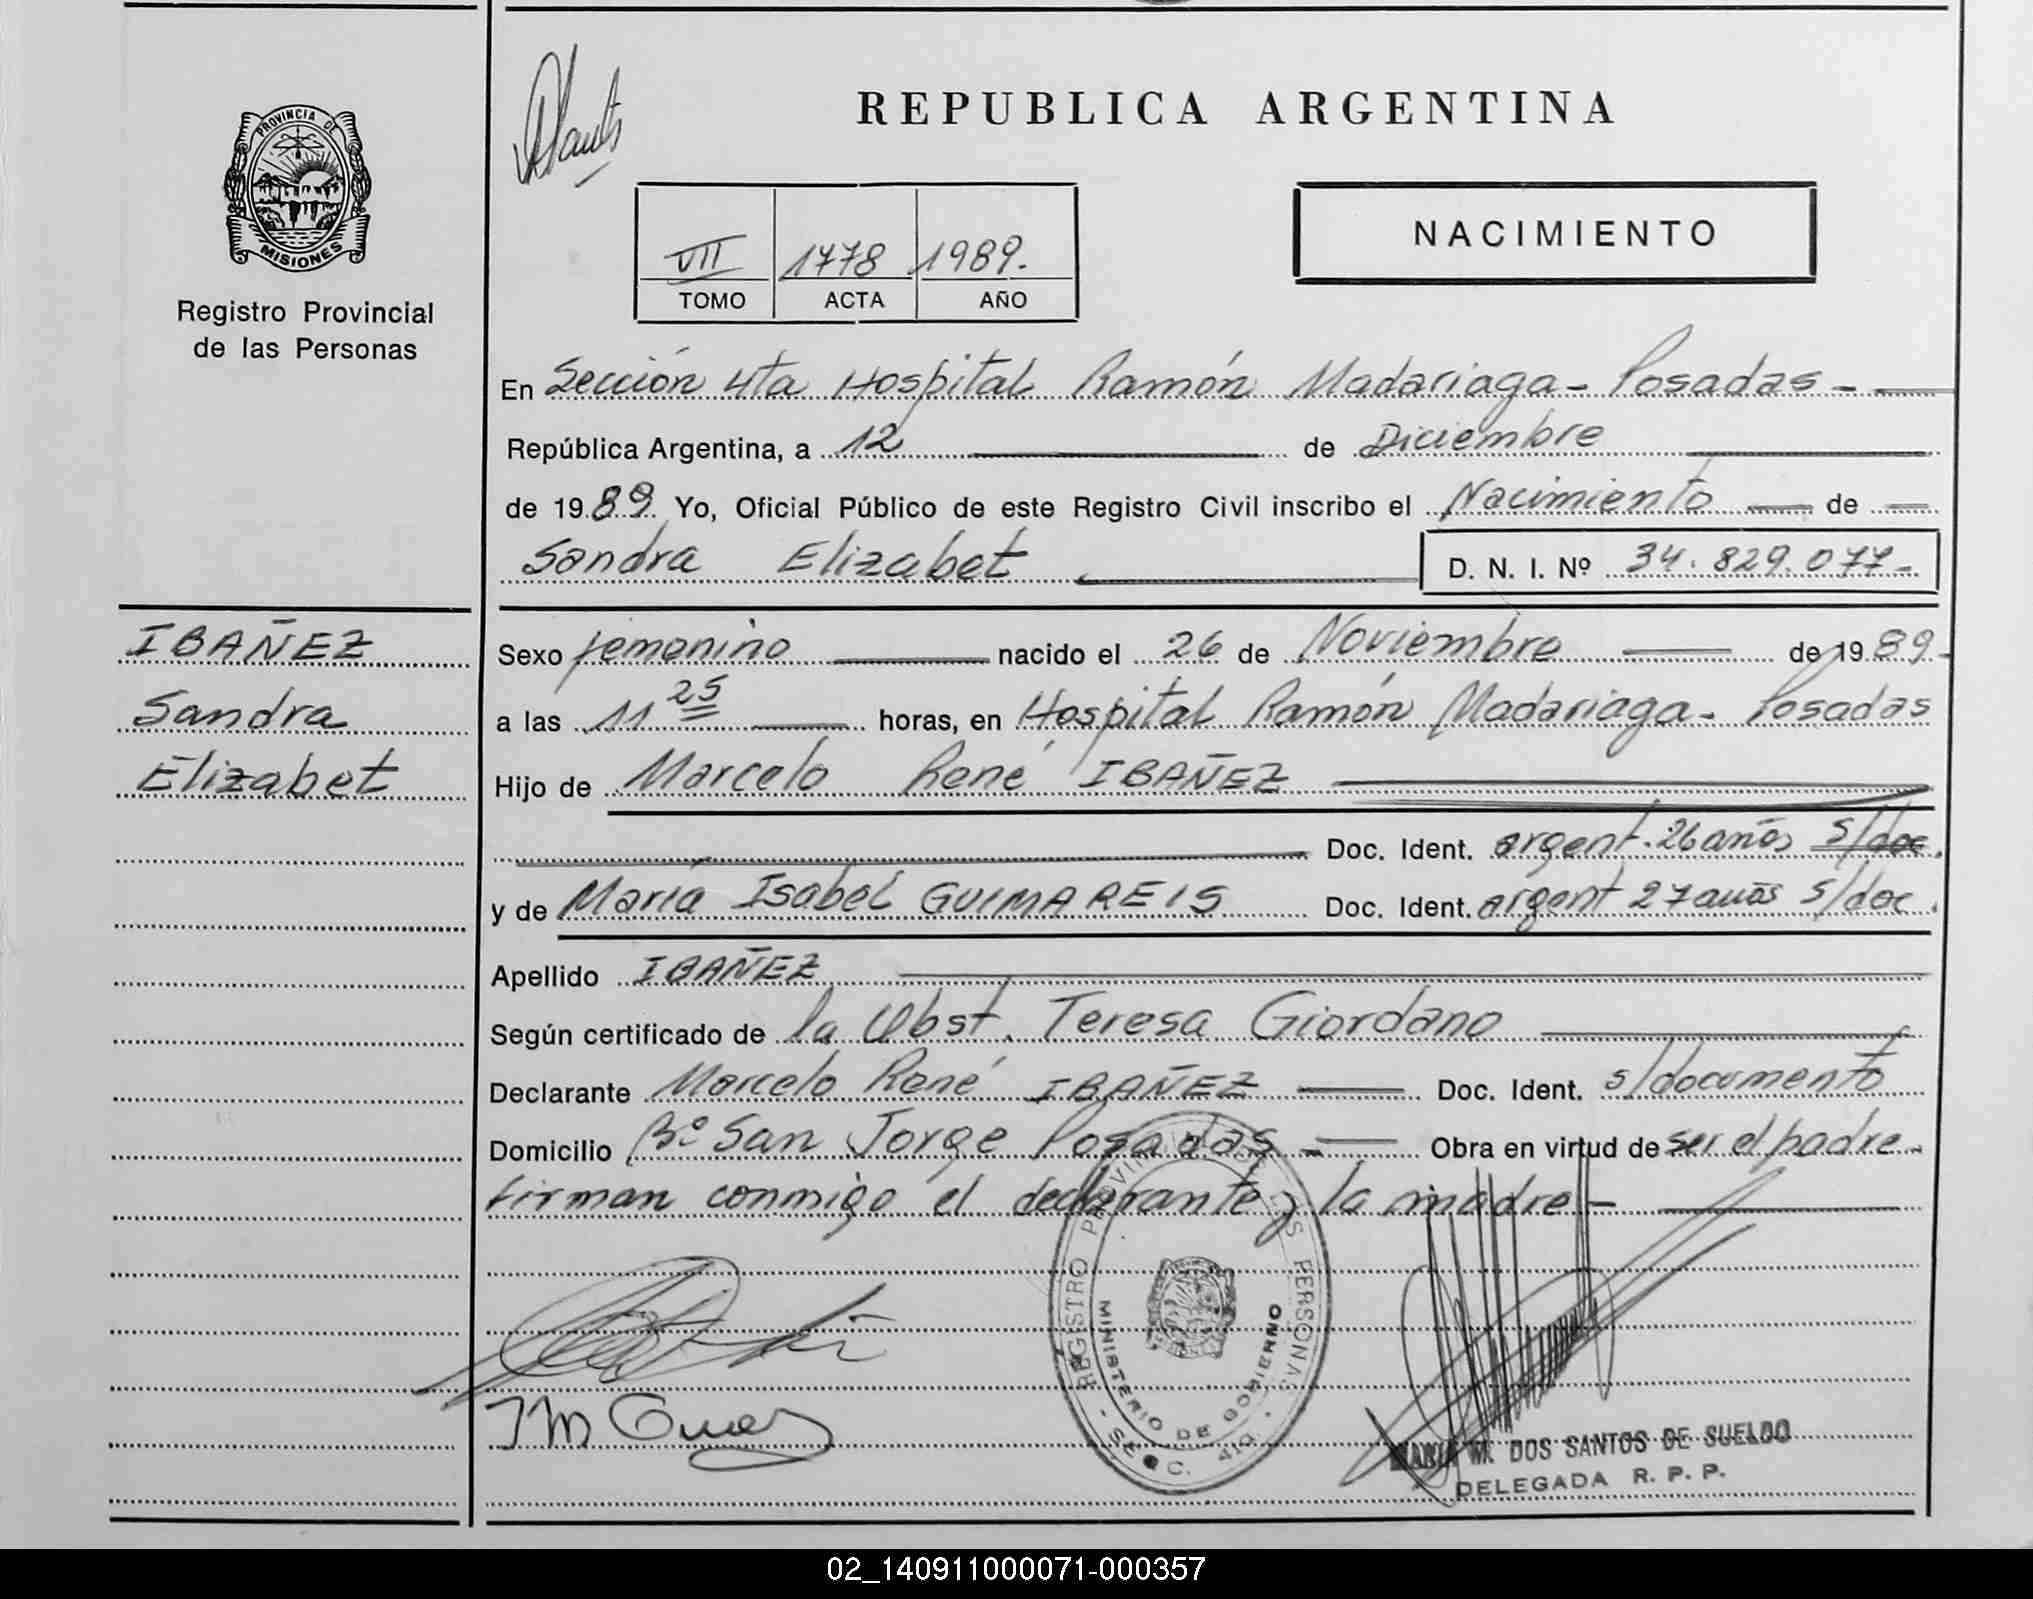 REPUBLICA ARGENTINA
PROVINCIA DE
MISIONES
Registro Provincial
de las Personas
VII 1778 1989.
TOMO ACTA AÑO
NACIMIENTO
En Sección 4ta Hospital Ramón Madariaga - Posadas -
República Argentina, a 12 de Diciembre
de 1989 Yo, Oficial Público de este Registro Civil inscribo el Nacimiento de
Sandra Elizabet D. N. I. Nº 34.829.077-
IBAÑEZ
Sandra
Elizabet
Sexo femenino nacido el 26 de Noviembre de 1989-
a las 11 25 horas, en Hospital Ramón Madariaga - Posadas
Hijo de Marcelo René IBAÑEZ
Doc. Ident. argent. 26 años s/doc.
y de María Isabel GUIMAREIS Doc. Ident. argent 27 años s/doc.
Apellido IBAÑEZ
Según certificado de la Obst. Teresa Giordano
Declarante Marcelo René IBAÑEZ Doc. Ident. s/documento
Domicilio Bº San Jorge Posadas - Obra en virtud de ser el padre -
firman conmigo el declarante y la madre -
REGISTRO PROVINCIAL DE LAS PERSONAS
MINISTERIO DE GOBIERNO
MARIA M. DOS SANTOS DE SUELDO
DELEGADA R. P. P.
02_140911000071-000357